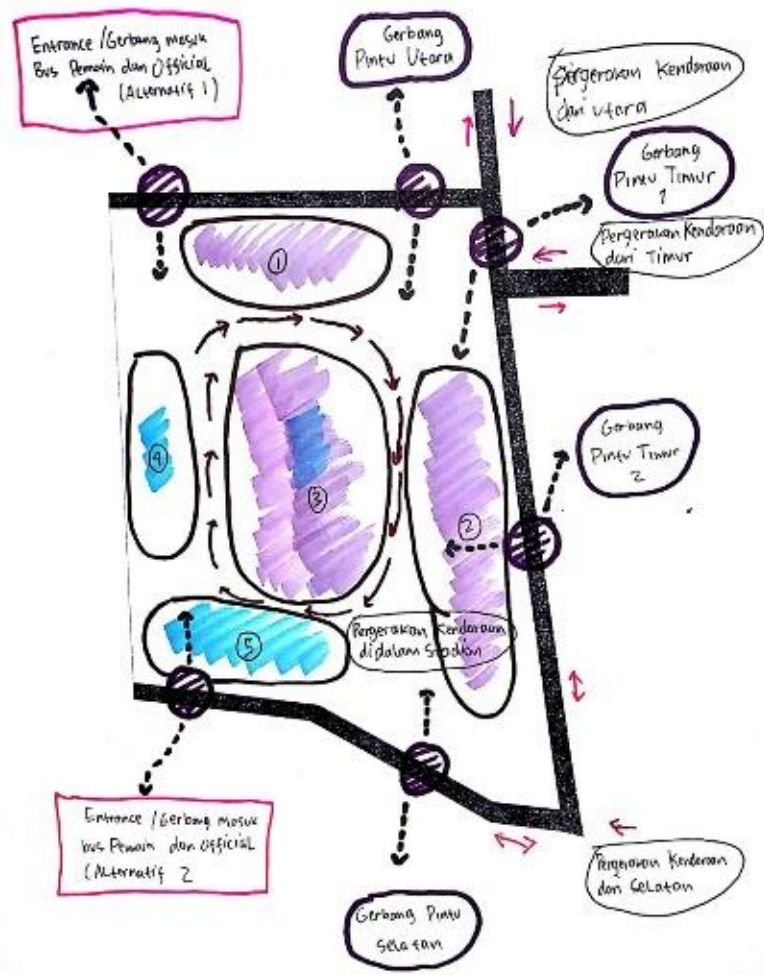 Entrance /Gerbang masuk
Bus Pemain dan Official
(Alternatif 1)
Gerbang
Pintu Utara
Pergerakan Kendaraan
dari utara
Gerbang
Pintu Timur
1
Pergerakan Kendaraan
dari Timur
1
4
3
2
5
Gerbang
Pintu Timur
2
Pergerakan Kendaraan
didalam Stadion
Entrance /Gerbang masuk
bus Pemain dan Official
(Alternatif 2
Pergerakan Kendaraan
dari Selatan
Gerbang Pintu
Selatan